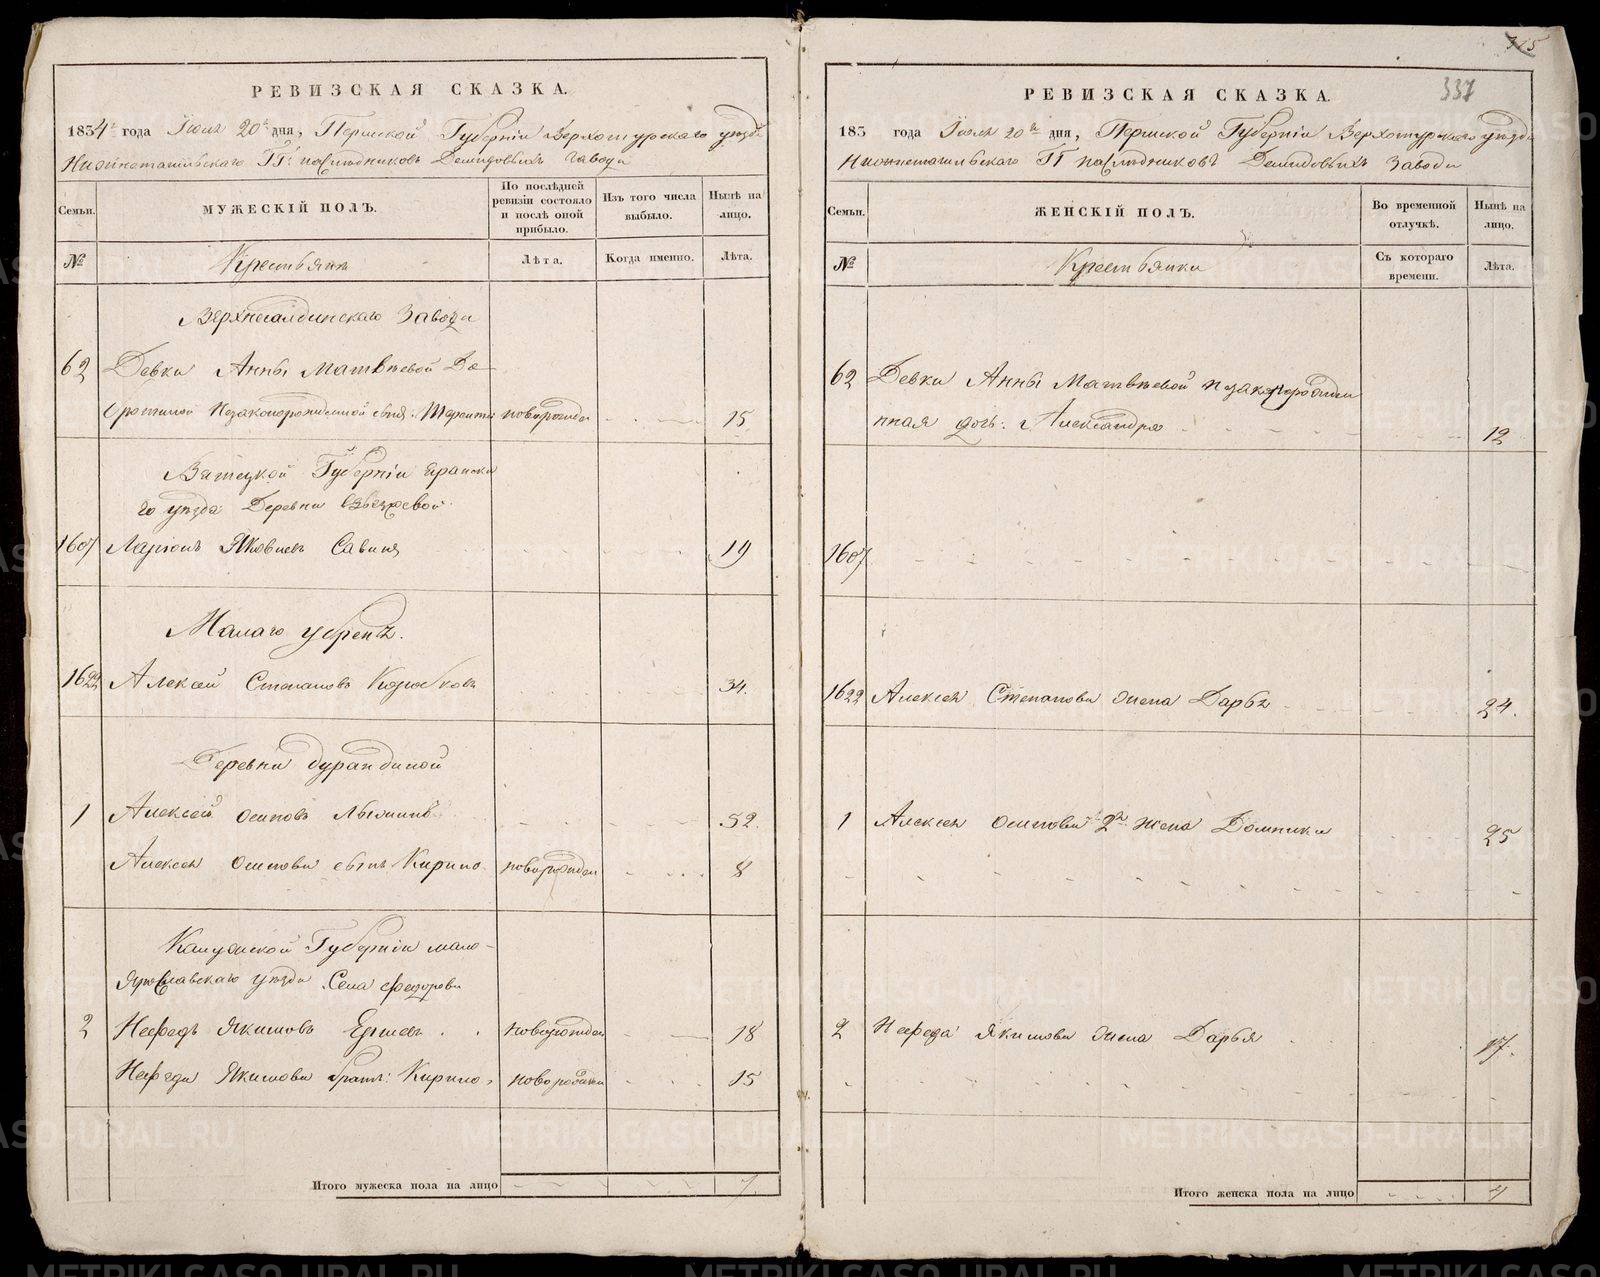 315
337
РЕВИЗСКАЯ СКАЗКА.
1834го года Июля 20го дня, Пермской Губерніи Верхотурскаго уезда
Нижнетагильскаго ГГ. наследниковъ Демидовыхъ завода
Семьи.
МУЖЕСКІЙ ПОЛЪ.
По послѣдней ревизіи состояло и послѣ оной прибыло.
Изъ того числа выбыло.
Нынѣ на лицо.
№
Крестьяне
Лѣта.
Когда именно.
Лѣта.
Верхнесалдинскаго завода
62 Девки Анны Матвѣевой
незаконорожденной сынъ Терентій новорожден 15
Вятской Губерніи Яранска
го уезда Деревни
1607 Ларіонъ Яковлевъ Савинъ 19
Малаго
1622 Алексей Степановъ 34.
Деревни Дурандиной
1 Алексей Осиповъ 52.
Алексея Осипова сынъ Кирило новорожден 8
Калужской Губерніи мало-
Ярославскаго уезда Села Федорова
2 Нефедъ Якимовъ новорожден 18
Нефеда Якимова братъ: Кирило новорожден 15
Итого мужеска пола на лицо 7
РЕВИЗСКАЯ СКАЗКА.
183 года Июля 20го дня, Пермской Губерніи Верхотурскаго уезда
Нижнетагильскаго ГГ наследниковъ Демидовыхъ завода
Семьи.
ЖЕНСКІЙ ПОЛЪ.
Во временной отлучкѣ.
Нынѣ на лицо.
№
Крестьянки
Съ котораго времени.
Лѣта.
62 Девки Анны Матвѣевой незаконорожде
нная дочь: Александра 12
1607
1622 Алексея Степанова жена Дарья 24.
1 Алексея Осипова 2я жена Домника 25
2 Нефеда Якимова жена Дарья 17.
Итого женска пола на лицо 4
METRIKI.GASO-URAL.RU